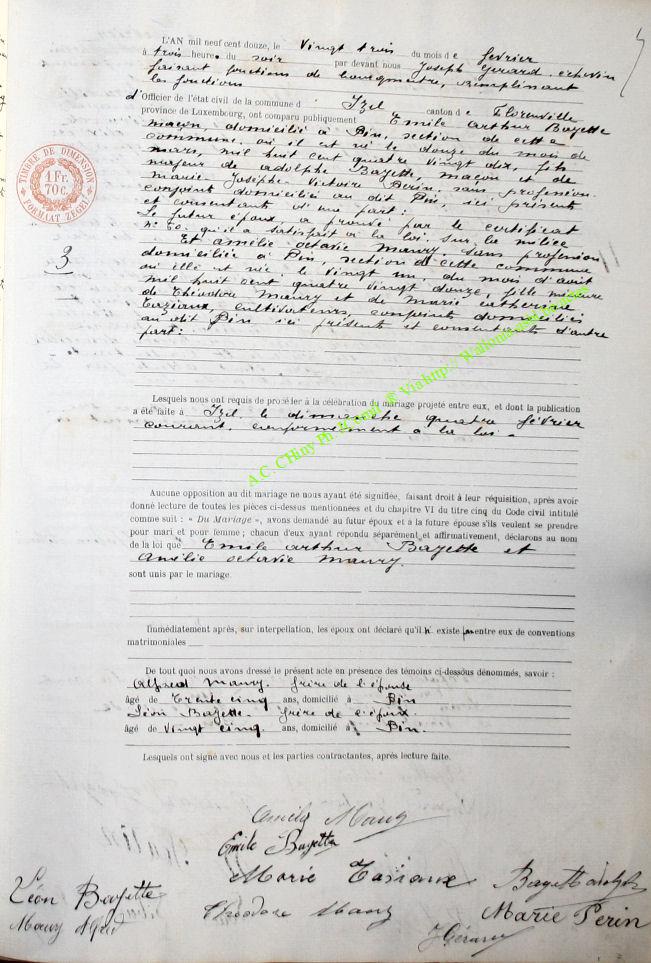 L'AN mil neuf cent douze, le Vingt trois du mois de février
à trois heures du soir par devant nous Joseph Gérard, echevin
faisant fonctions de bourgmestre, remplissant
les fonctions
d'Officier de l'état civil de la commune d Izel canton de Florenville
province de Luxembourg, ont comparu publiquement Emile Arthur Bayette
maçon, domicilié à Pin, section de cette
commune où il est né le douze du mois de
mars, mil huit cent quatre vingt dix, fils
majeur de Adolphe Bayette, maçon et de
Marie Josephe Victoire Perin, sans profession
conjoint domiciliés au dit Pin, ici présents
et consentants d'une part:
Le futur époux, a prouvé par le certificat
N° 50. qu'il a satisfait à la loi sur la milice
Et Amélie Octavie Maury, sans profession
domiciliée à Pin, section de cette commune
où elle est née le vingt un du mois d'août
mil huit cent quatre vingt douze, fille mineure
de Théodore Maury et de Marie Catherine
Taziaux, cultivateurs, conjoints domiciliés
au dit Pin ici présents et consentants d'autre
part:
TIMBRE DE DIMENSION
1 Fr.
70 c.
FORMAAT ZEGEL
3
Lesquels nous ont requis de procéder à la célébration du mariage projeté entre eux, et dont la publication
a été faite à Izel, le dimanche quatre février
courant, conformément à la loi.
Aucune opposition au dit mariage ne nous ayant été signifiée, faisant droit à leur réquisition, après avoir
donné lecture de toutes les pièces ci-dessus mentionnées et du chapitre VI du titre cinq du Code civil intitulé
comme suit : « Du Mariage », avons demandé au futur époux et à la future épouse s'ils veulent se prendre
pour mari et pour femme ; chacun d'eux ayant répondu séparément et affirmativement, déclarons au nom
de la loi que Emile Arthur Bayette et
Amélie Octavie Maury.
sont unis par le mariage.
Immédiatement après, sur interpellation, les époux ont déclaré qu'il n' existe pas entre eux de conventions
matrimoniales
De tout quoi nous avons dressé le présent acte en présence des témoins ci-dessous dénommés, savoir :
Alfred Maury. frère de l'épouse
âgé de Trente cinq ans, domicilié à Pin
Léon Bayette. frère de l'époux
âgé de Vingt cinq ans, domicilié à Pin.
Lesquels ont signé avec nous et les parties contractantes, après lecture faite.
Amélie Maury
Emile Bayette
Marie Tasiaux
Léon Bayette
Théodore Maury
Marie Perin
J Gérard
A.C. CHiny Ph. ® Via http://